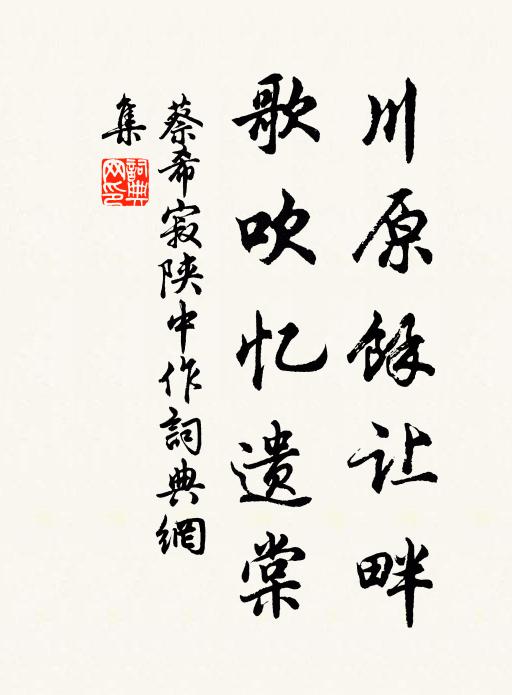 川原馀让畔
歌吹忆遗棠
蔡希寂陕中作詞典網
集
詞典
网印